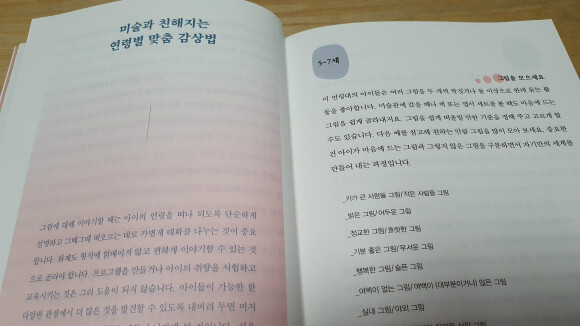 미술과 친해지는
연령별 맞춤 감상법
그림에 대해 이야기할 때는 아이의 연령을 떠나 되도록 단순하게
설명하고 그때그때 떠오르는 대로 가볍게 대화를 나누는 것이 중요
합니다. 화제도 형식에 얽매이지 않고 편하게 이야기할 수 있는 것
으로 골라야 합니다. 프로그램을 만들거나 아이의 취향을 시험하고
교육시키는 것은 그리 도움이 되지 않습니다. 아이들이 가능한 한
다양한 관점에서 더 많은 것을 발견할 수 있도록 내버려 두면 머지
5~7세
그림을 모으세요
이 연령대의 아이들은 여러 그림을 두 개씩 짝짓거나 둘 이상으로 한데 묶는 활
동을 좋아합니다. 미술관에 갔을 때나 책 또는 엽서 세트를 볼 때도 마음에 드는
그림을 쉽게 골라내지요. 그림을 쉽게 떠올릴 만한 기준을 정해 주고 고르게 할
수도 있습니다. 다음 예를 참고해 원하는 만큼 그림을 많이 모아 보세요. 중요한
건 아이가 마음에 드는 그림과 그렇지 않은 그림을 구분하면서 자기만의 세계를
만들어 내는 과정입니다.
_키가 큰 사람들 그림/작은 사람들 그림
_밝은 그림/어두운 그림
_정교한 그림/흐릿한 그림
_기분 좋은 그림/무서운 그림
_행복한 그림/슬픈 그림
_여백이 없는 그림/여백이 (대부분이거나) 많은 그림
_실내 그림/야외 그림